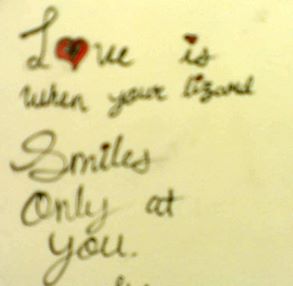 Love is
when your lizard
Smiles
Only at
you.